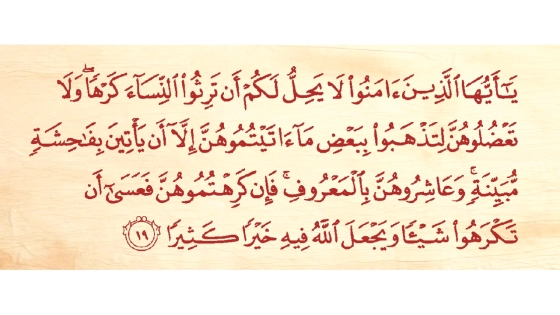 يَٰٓأَيُّهَا ٱلَّذِينَ ءَامَنُوا۟ لَا يَحِلُّ لَكُمْ أَن تَرِثُوا۟ ٱلنِّسَآءَ كَرْهًۭا ۖ وَلَا
تَعْضُلُوهُنَّ لِتَذْهَبُوا۟ بِبَعْضِ مَآ ءَاتَيْتُمُوهُنَّ إِلَّآ أَن يَأْتِينَ بِفَٰحِشَةٍۢ
مُّبَيِّنَةٍۢ ۚ وَعَاشِرُوهُنَّ بِٱلْمَعْرُوفِ ۚ فَإِن كَرِهْتُمُوهُنَّ فَعَسَىٰٓ أَن
تَكْرَهُوا۟ شَيْـًۭٔا وَيَجْعَلَ ٱللَّهُ فِيهِ خَيْرًۭا كَثِيرًۭا ١٩